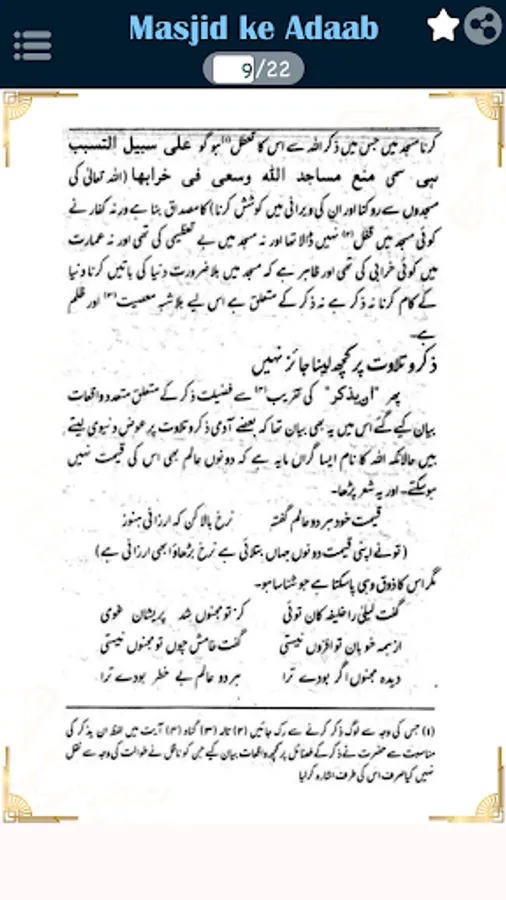 Masjid ke Adaab
9/22
کرنا مسجد میں جس میں ذکر اللہ سے اس کا تعطل(۱) ہو گو علی سبیل التسبب
ہی سی منع مساجد اللہ وسعی فی خرابھا (اللہ تعالیٰ کی
مسجدوں سے روکنا اور ان کی ویرانی میں کوشش کرنا) کا مصداق بنا ہے ورنہ کفار نے
کوئی مسجد میں قفل(۲) نہیں ڈالا تھا اور نہ مسجد میں بے تعظیمی کی تھی اور نہ عمارت
میں کوئی خرابی کی تھی اور ظاہر ہے کہ مسجد میں بلا ضرورت دنیا کی باتیں کرنا دنیا
کے کام کرنا نہ ذکر ہے نہ ذکر کے متعلق ہے اس لیے بلا شبہ معصیت(۳) اور ظلم
ہے۔
ذکر و تلاوت پر کچھ لینا جائز نہیں
پھر "ان یذکر" کی تقریب(۴) سے فضیلت ذکر کے متعلق متعدد واقعات
بیان کیے گئے اس میں یہ بھی بیان تھا کہ بعضے آدمی ذکر و تلاوت پر عوض دنیوی لیتے
ہیں حالانکہ اللہ کا نام ایسا گراں مایہ ہے کہ دونوں عالم بھی اس کی قیمت نہیں
ہوسکتے۔ اور یہ شعر پڑھا۔
قیمت خود ہر دو عالم گفتہ نرخ بالا کن کہ ارزانی ہنوز
(تونے اپنی قیمت دونوں جہاں بتلائی ہے نرخ بڑھاؤ ابھی ارزانی ہے)
مگر اس کا ذوق وہی پاسکتا ہے جو شناسا ہو۔
گفت لیلیٰ را خلیفہ کان توئی کز تو مجنوں شد پریشان غوی
از ہمہ خوباں تو افزوں نیستی گفت خامش چوں تو مجنوں نیستی
دیدہ مجنوں اگر بودے ترا ہر دو عالم بے خطر بودے ترا
(۱) جس کی وجہ سے لوگ ذکر کرنے سے رک جائیں (۲) تالہ (۳) گناہ (۴) آیت میں لفظ ان یذکر کی
مناسبت سے حضرت نے ذکر کے فضائل پر کچھ واقعات بیان کیے جن کو ناقل نے طوالت کی وجہ سے نقل
نہیں کیا صرف اس کی طرف اشارہ کر لیا